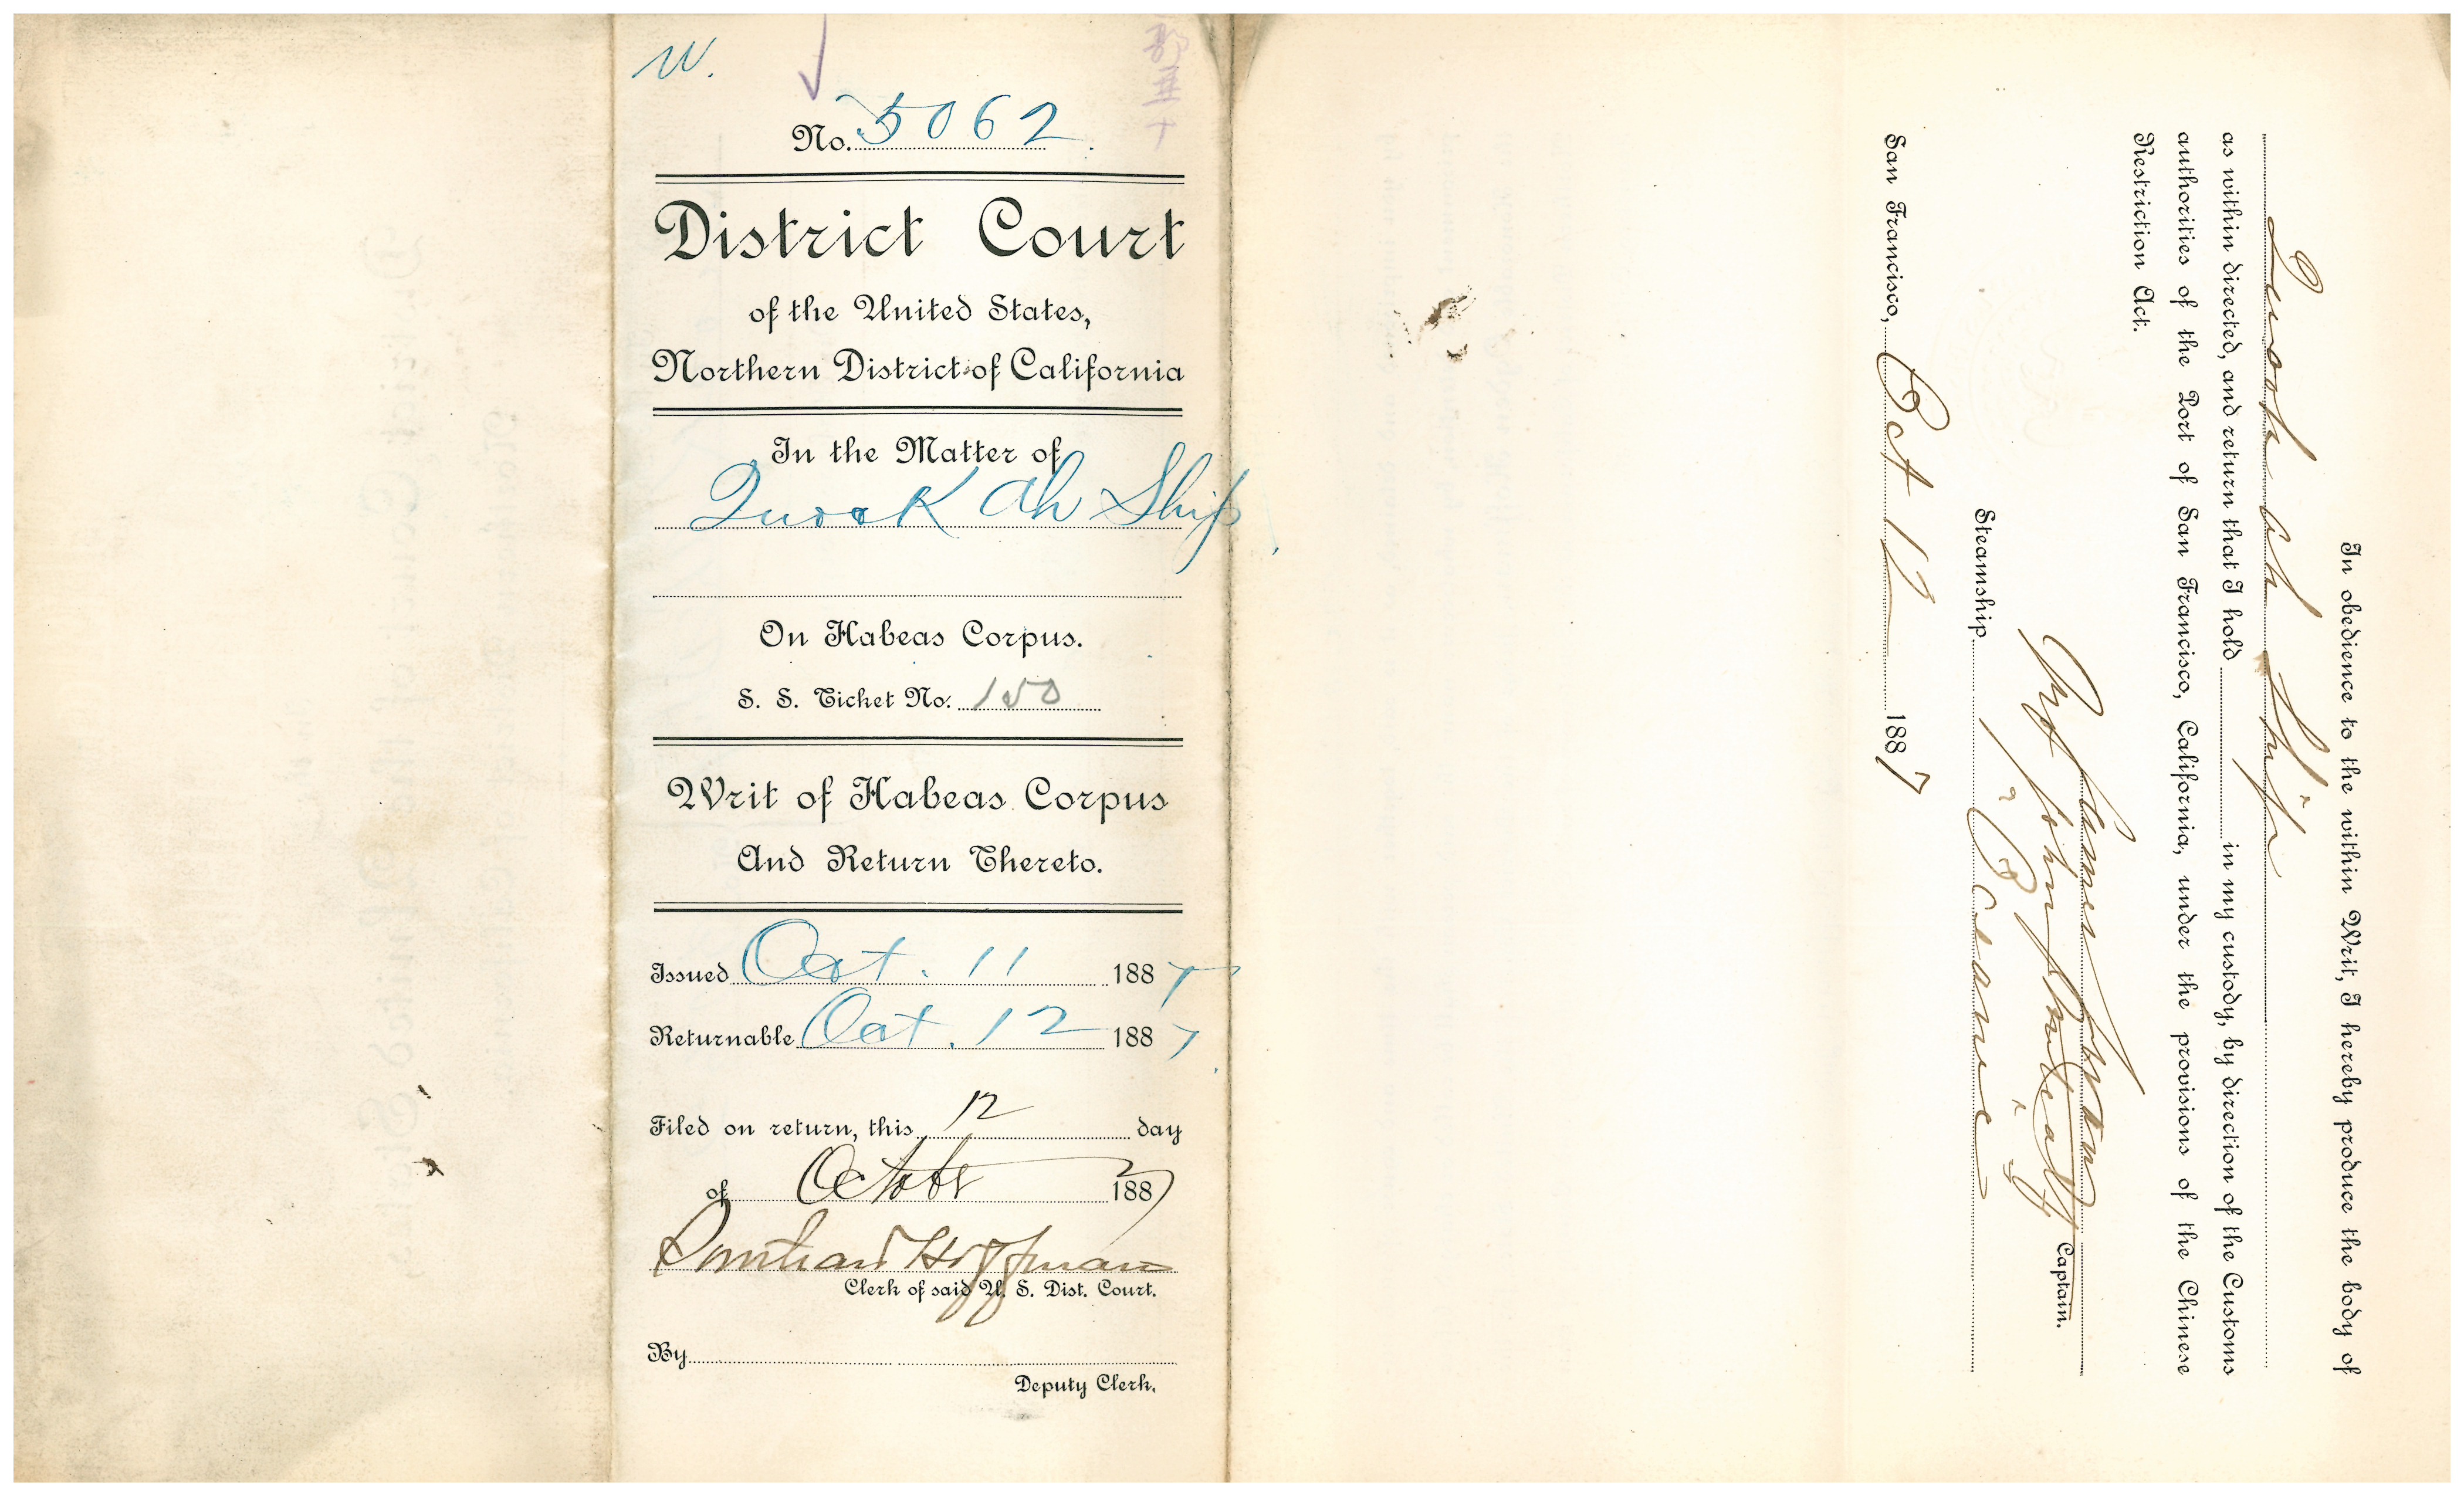 W.
No. 5062.
District Court
of the United States,
Northern District of California
In the Matter of
Quock Ah Ship
On Habeas Corpus.
S. S. Ticket No. 150
Writ of Habeas Corpus
And Return Thereto.
Issued Oct. 11 1887
Returnable Oct. 12 1887
Filed on return, this 12 day
of October 1887
Southard Hoffman
Clerk of said U. S. Dist. Court.
By
Deputy Clerk.
In obedience to the within Writ, I hereby produce the body of
Quock Ah Ship
as within directed, and return that I hold in my custody, by direction of the Customs
authorities of the Port of San Francisco, California, under the provisions of the Chinese
Restriction Act.
Captain.
Steamship Oceanic
San Francisco, Oct 12 1887